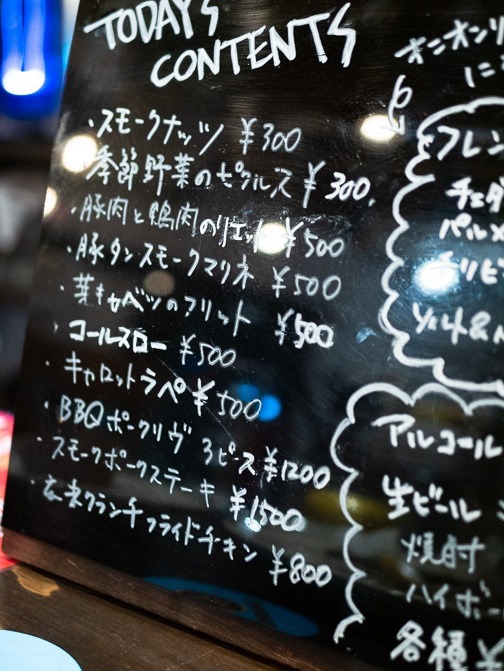 TODAY'S
CONTENTS
・スモークナッツ ¥300
季節野菜のピクルス ¥300.
・豚肉と鴨肉のリエット ¥500
・豚タンスモークマリネ ¥500
・芽キャベツのフリット ¥500
・コールスロー ¥500
・キャロットラペ ¥500
・BBQポークリヴ 3ピース ¥1200
・スモークポークステーキ ¥1500
・クランチフライドチキン ¥800
オニオンリ
に
フレン
チェダ
パルメ
チリビ
ソルト&
アルコール
生ビール
焼酎
ハイボー
各種 ¥